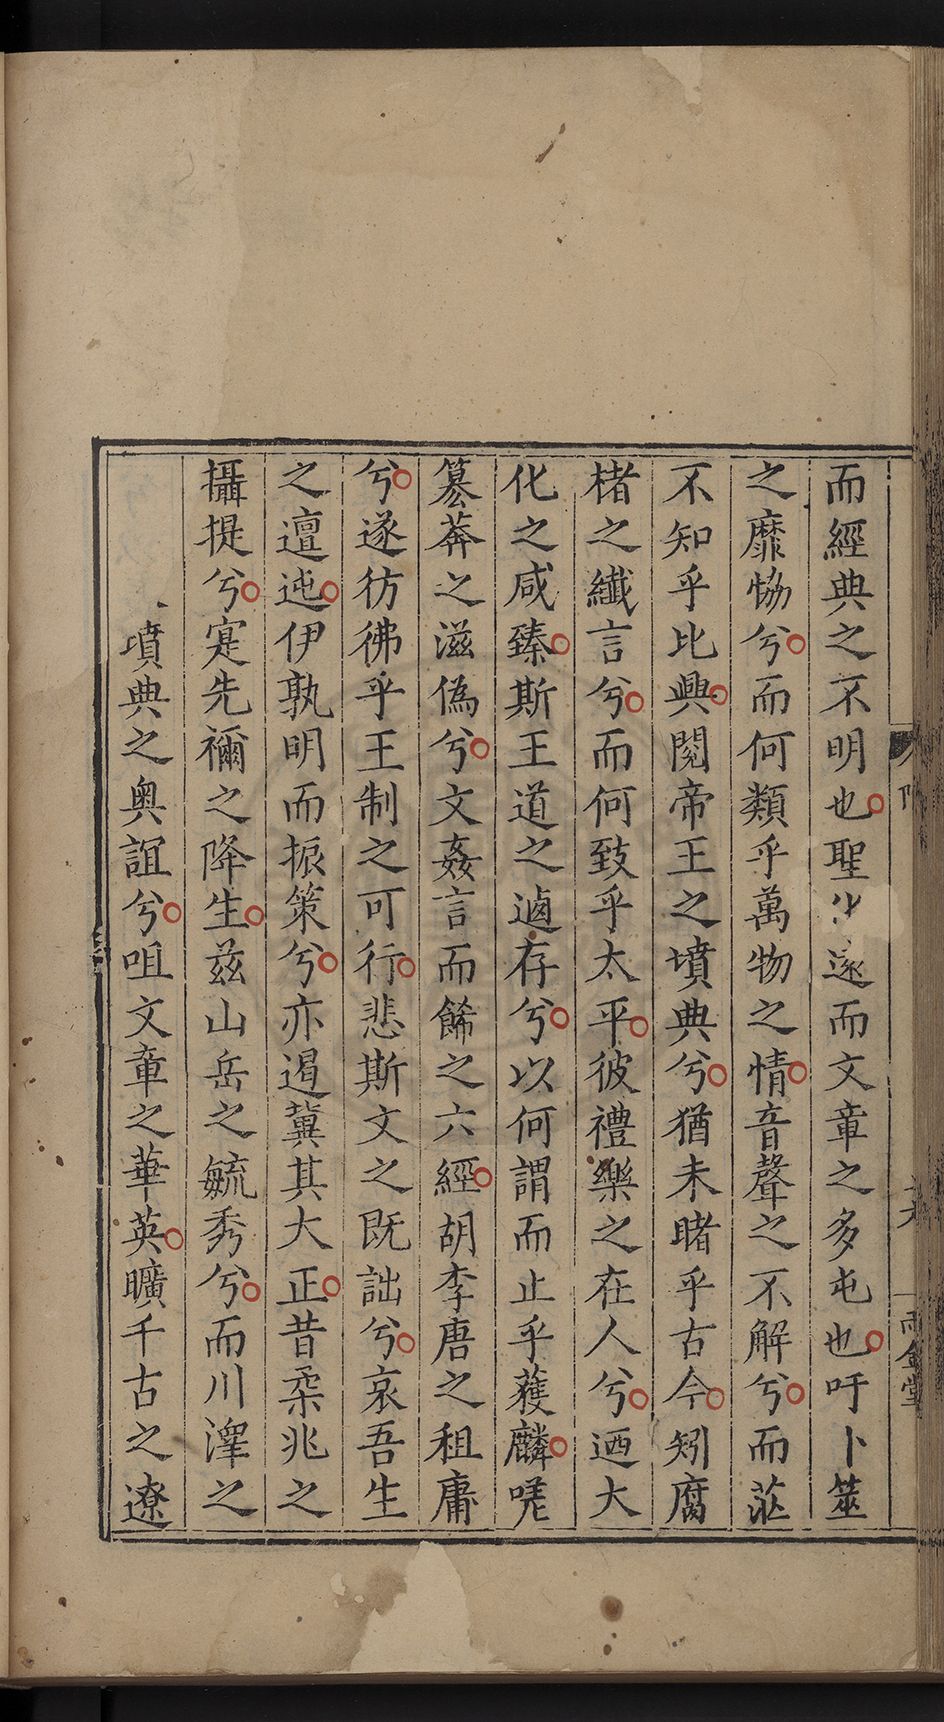 而經典之不明也聖遠而文章之多屯也吁卜筮
之靡恊兮而何類乎萬物之情音聲之不解兮而茫
不知乎比興閱帝王之墳典兮猶未睹乎古今矧腐
楮之纖言兮而何致乎太平彼禮樂之在人兮迺大
化之咸臻斯王道之逌存兮以何謂而止乎蒦麟嗟
篡莽之滋僞兮文姦言而餙之六經胡李唐之租庸
兮遂彷彿乎王制之可行悲斯文之既詘兮哀吾生
之邅迍伊孰明而振策兮亦遏冀其大正昔柔兆之
攝提兮寔先禰之降生兹山岳之毓秀兮而川澤之
墳典之奥誼兮咀文章之華英曠千古之遼